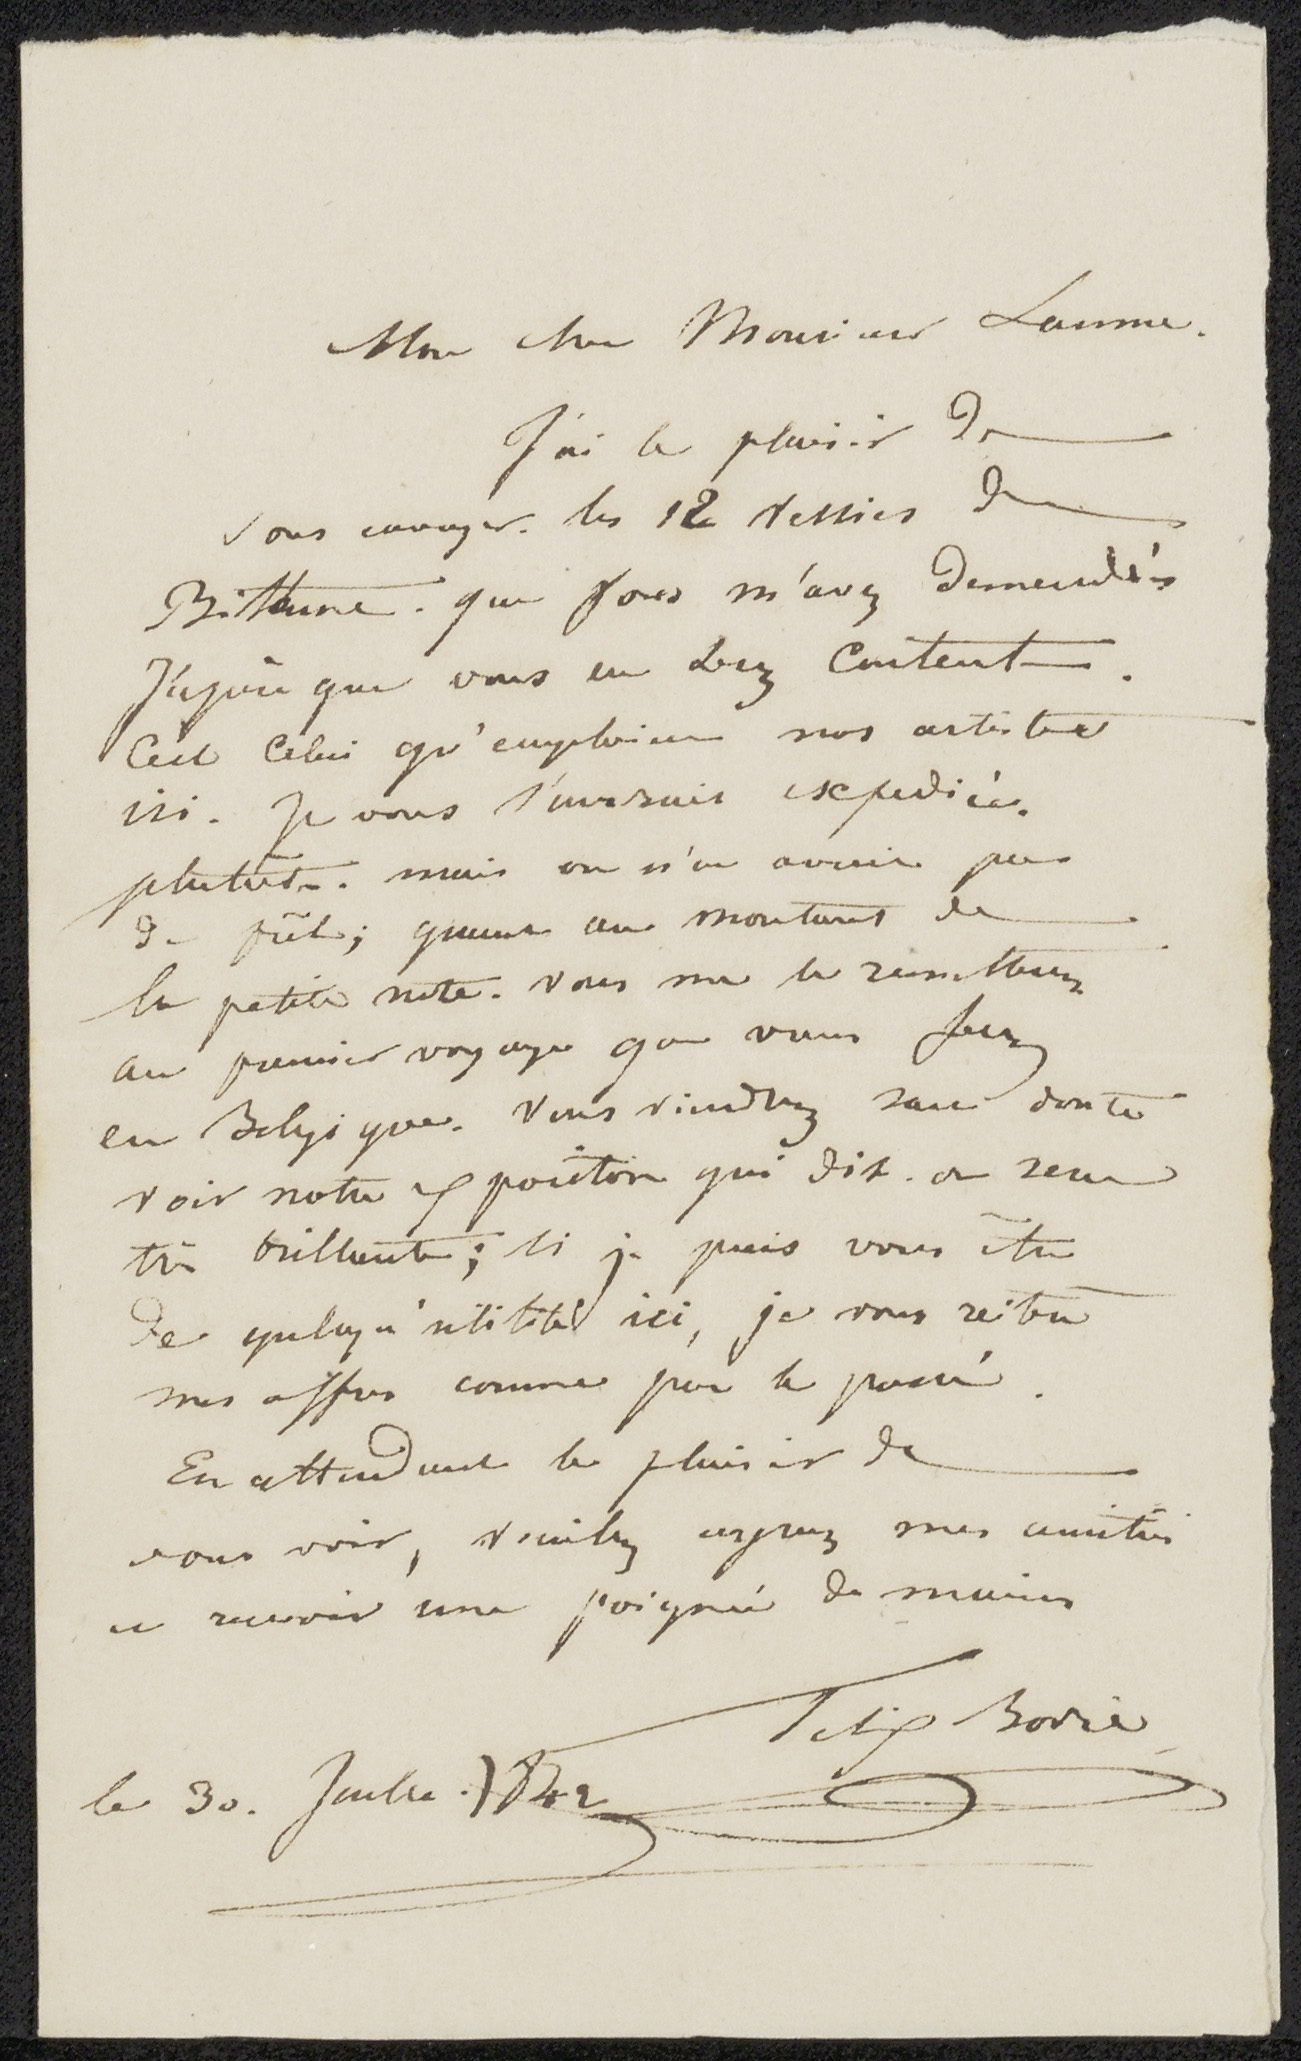 Mon cher Monsieur Laume.
J'ai le plaisir de
vous envoyer. les 12 vessies de
Bittume. que vous m'avez demendés
J'espère que vous en serez content.
C'est celui qu'emploient nos artiste
ici. Je vous l'aurais expediée.
plutôt. mais on n'en avait pas
de prêt; quant au montant de
la petite note. vous me le remetterez
au premier voyage que vous ferez
en Belgique. vous viendrez sans doute
voir notre exposition qui dit. on sera
très brillante; si je puis vous être
de quelqu'utilité ici, je vous reitère
mes offres comme par le passé.
En attendant le plaisir de
vous voir, veuillez agréez mes amitiés
et recevoir une poignée de mains
Felix Bovie
le 30. Juillet. 1842